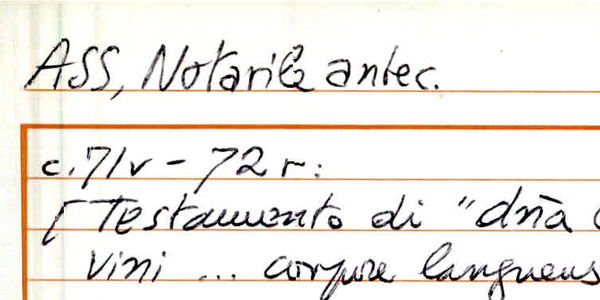 ASS, Notarile antec.
c. 71v - 72r:
[Testamento di "dña
Vini ... corpore languens